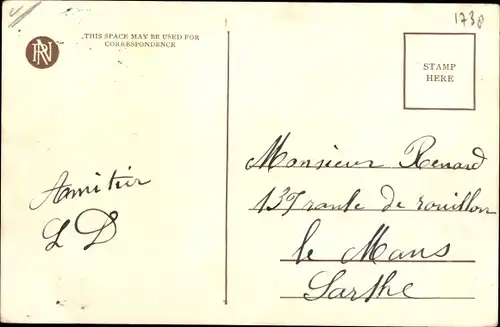 1738
RN
THIS SPACE MAY BE USED FOR
CORRESPONDENCE
STAMP
HERE
Amitiér
L D
Monsieur Renard
137 route de rouillon
le Mans
Sarthe